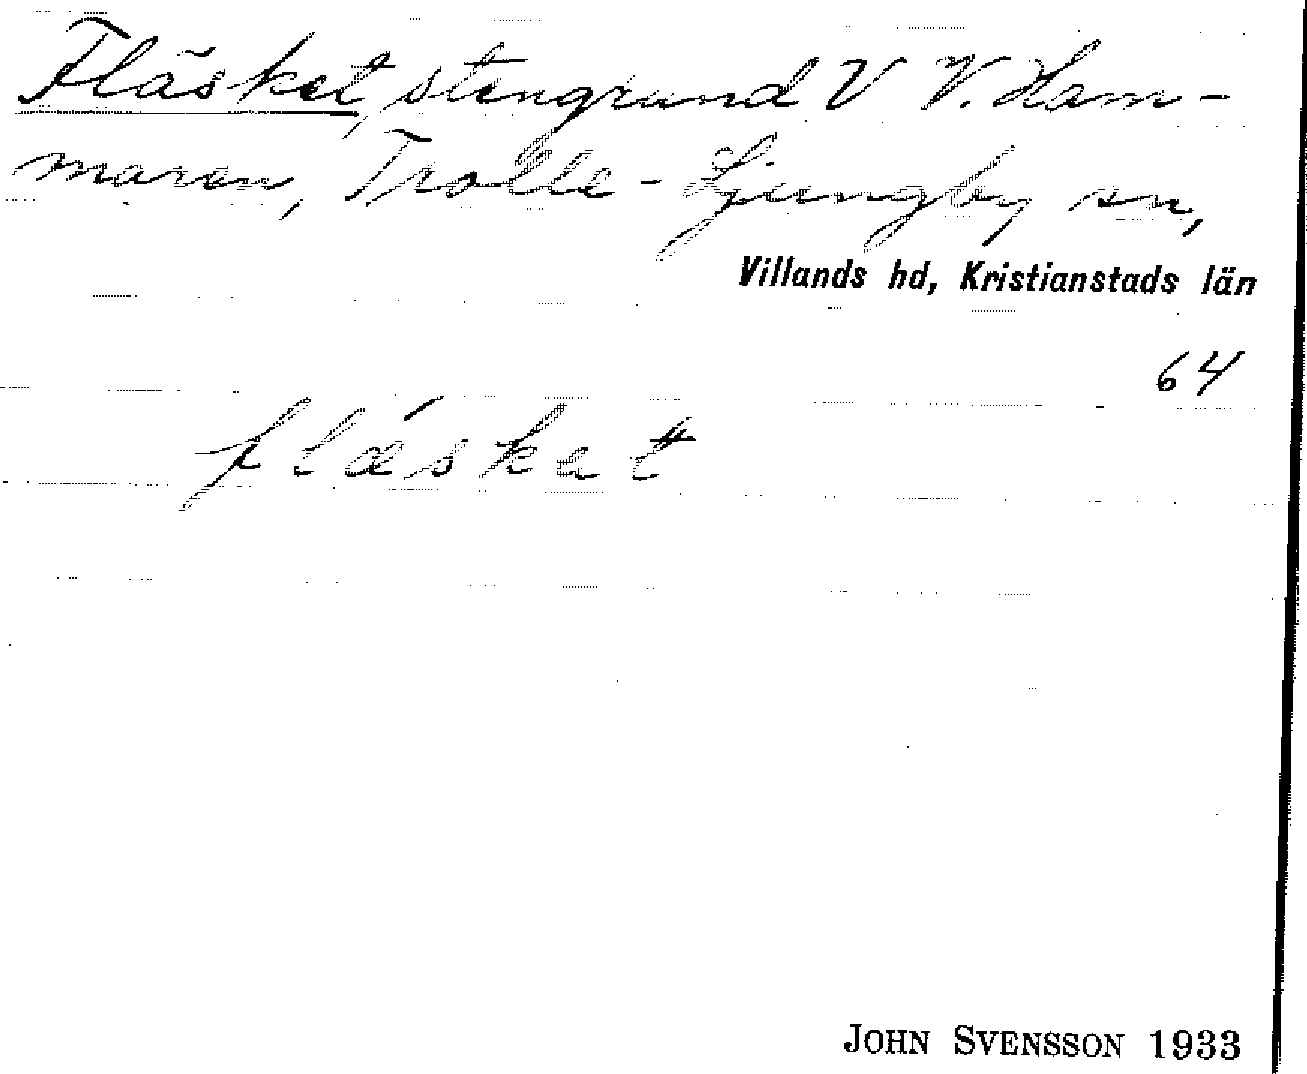 Fläsket, stengrund V V. Ham-
maren, Trolle-Ljungby sn,
Villands hd, Kristianstads län
64
flǽskət
JOHN SVENSSON 1933